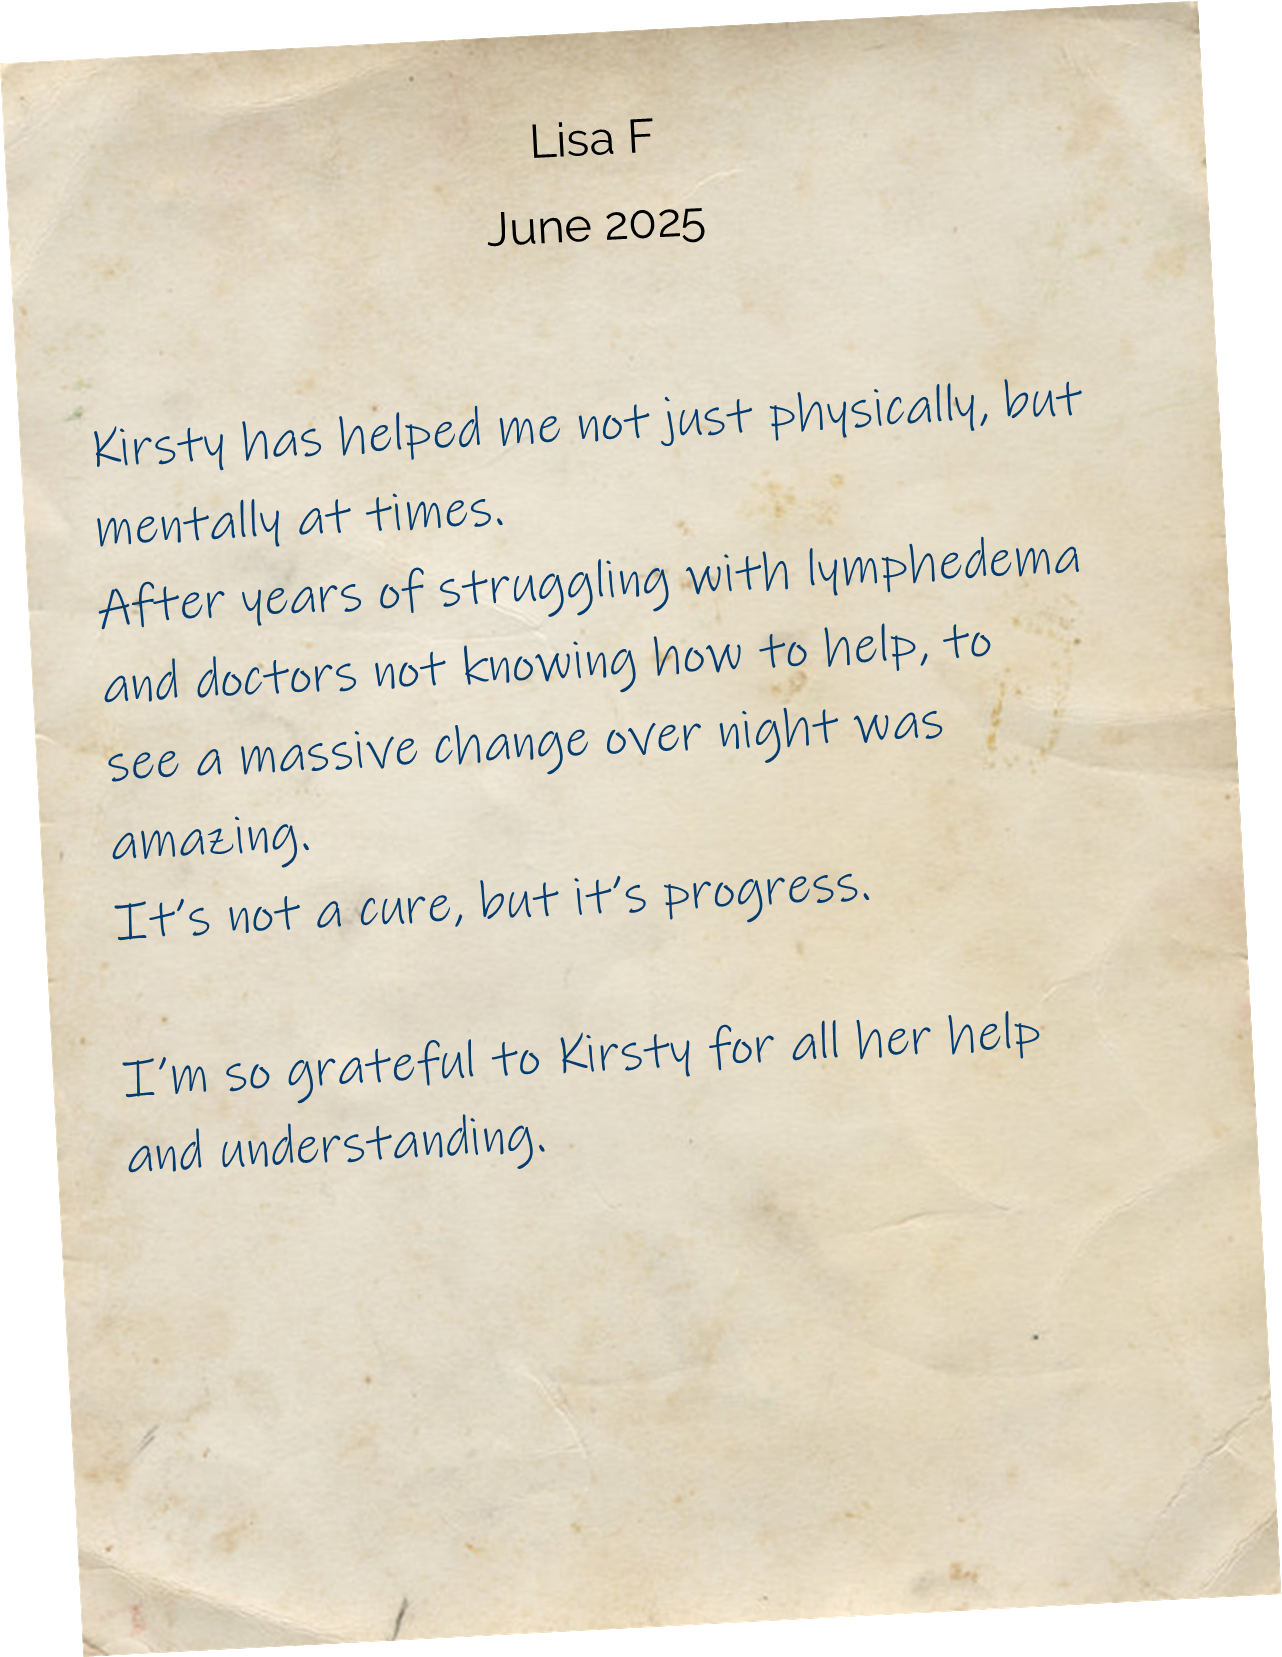 Lisa F
June 2025
Kirsty has helped me not just physically, but
mentally at times.
After years of struggling with lymphedema
and doctors not knowing how to help, to
see a massive change over night was
amazing.
It's not a cure, but it's progress.
I'm so grateful to Kirsty for all her help
and understanding.